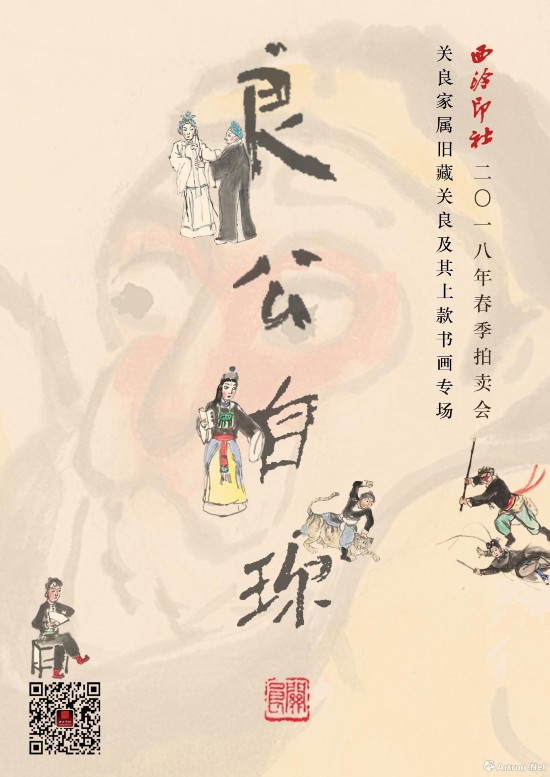 西泠印社 二〇一八年春季拍卖会
关良家属旧藏关良及其上款书画专场
良公自珎
關良
Artron.Net